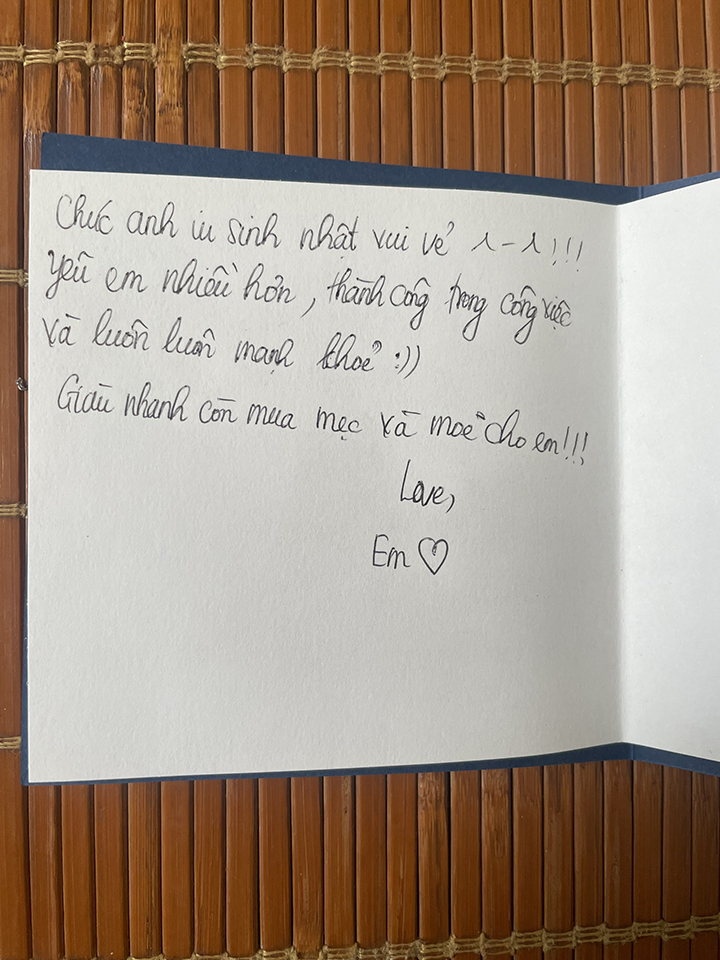 Chúc anh iu sinh nhật vui vẻ ^-^!!!
Yêu em nhiều hơn, thành công trong công việc
và luôn luôn mạnh khoẻ :))
Giàu nhanh còn mua mẹc và moè cho em!!!
Love,
Em ♡